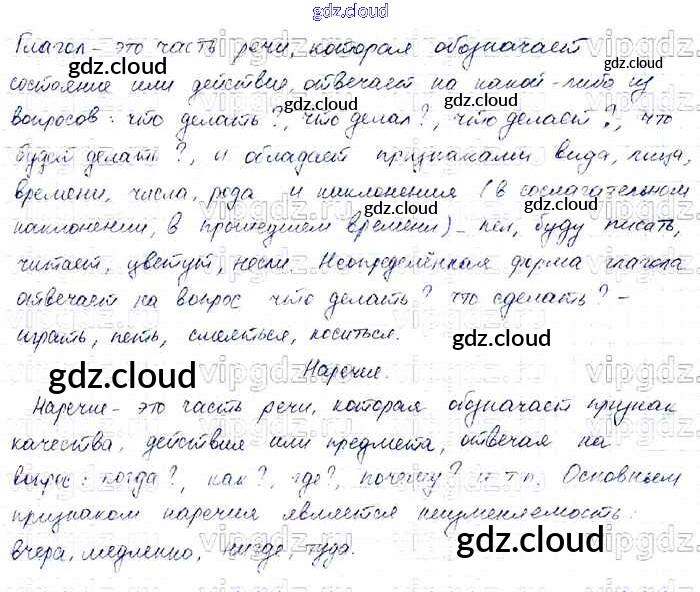 gdz.cloud
Глагол - это часть речи, которая обозначает
состояние или действие, отвечает на какой-либо из
вопросов: что делать?, что делал?, что делает?, что
будет делать?, и обладает признаками вида, лица,
времени, числа, рода и наклонения (в сослагательном
наклонении, в прошедшем времени) - пел, буду писать,
читает, цветут, несли. Неопределённая форма глагола
отвечает на вопрос что делать? что сделать? -
играть, петь, смеяться, носиться.
Наречие.
Наречие - это часть речи, которая обозначает признак
качества, действия или предмета, отвечая на
вопрос: когда?, как?, где?, почему? и т.п. Основным
признаком наречия является неизменяемость:
вчера, медленно, нигде, туда.